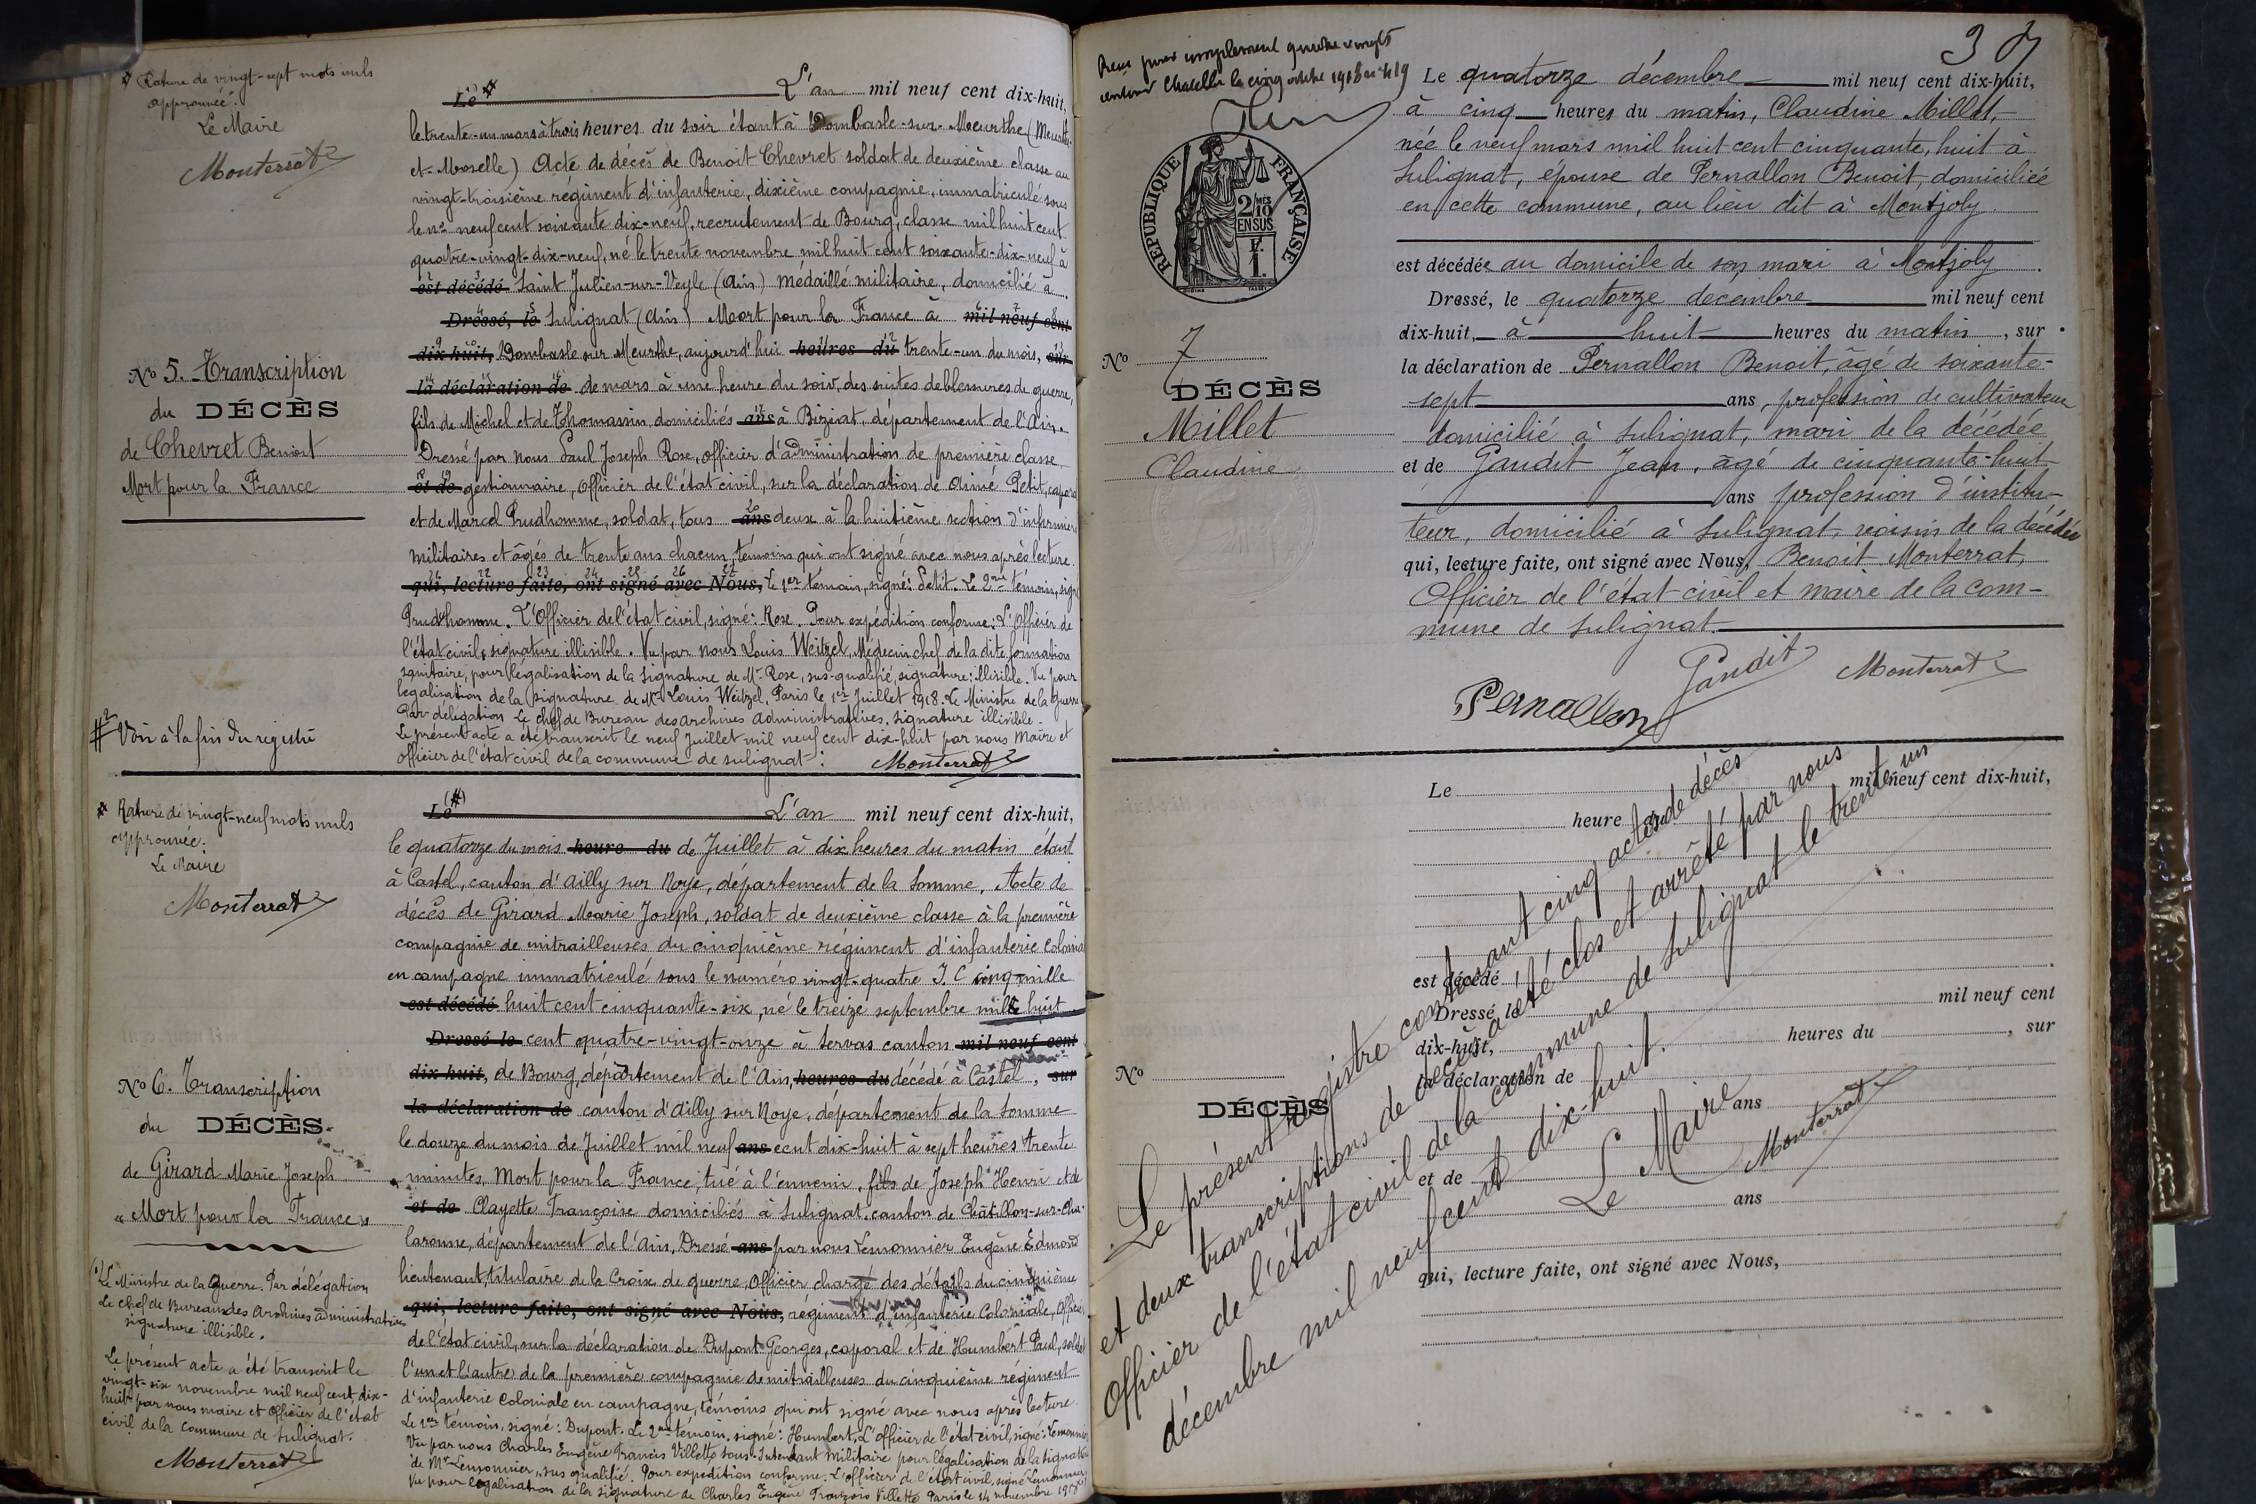 Rature de vingt-sept mots nuls
approuvée.
Le Maire
Monterrat
Le L'an mil neuf cent dix-huit,
le trente-un mars à trois heures du soir étant à Dombasle-sur-Meurthe (Meurthe-
et-Moselle) Acte de décès de Benoit Chevret soldat de deuxième classe au
vingt-troisième régiment d'infanterie, dixième compagnie, immatriculé sous
le no neuf cent soixante dix-neuf, recrutement de Bourg, classe mil huit cent
quatre-vingt-dix-neuf, né le trente novembre mil huit cent soixante-dix-neuf à
est décédé Saint Julien-sur-Veyle (Ain) médaillé militaire, domicilié à
Dressé, le Sulignat (Ain) Mort pour la France à mil neuf cent
dix-huit, Dombasle sur Meurthe, aujourd'hui heures du trente-un du mois, sur
la déclaration de de mars à une heure du soir, des suites de blessures de guerre,
fils de Michel et de Thomassin domiciliés ans à Biziat, département de l'Ain.
Dressé par nous Paul Joseph Rose, officier d'administration de première classe
et de gestionnaire, officier de l'état civil, sur la déclaration de Aimé Petit, caporal
et de Marcel Prudhomme, soldat, tous ans deux à la huitième section d'infirmiers
militaires et âgés de trente ans chacun, témoins qui ont signé avec nous après lecture
qui, lecture faite, ont signé avec Nous, Le 1er témoin, signé: Petit. Le 2me témoin, signé
Prudhomme. L'Officier de l'état civil, signé: Rose. Pour expédition conforme: L'Officier de
l'état civil, signature illisible. Vu par nous Louis Weitzel, Médecin chef de la dite formation
sanitaire, pour légalisation de la signature de Mr Rose, sus-qualifié, signature: illisible. Vu pour
légalisation de la signature de Mr Louis Weitzel. Paris le 1er Juillet 1918. Le Ministre de la Guerre
Par délégation Le chef de Bureau des archives administratives. signature illisible.
Le présent acte a été transcrit le neuf Juillet mil neuf cent dix-huit par nous Maire et
officier de l'état civil de la commune de Sulignat:
Monterrat
No 5. Transcription
du DÉCÈS
de Chevret Benoit
Mort pour la France
Voir à la fin du registre
Rature de vingt-neuf mots nuls
approuvée.
Le Maire
Monterrat
Le (#) L'an mil neuf cent dix-huit,
le quatorze du mois heure du de Juillet à dix heures du matin étant
à Castel, canton d'Ailly sur Noye, département de la Somme. Acte de
décès de Girard Marie Joseph, soldat de deuxième classe à la première
compagnie de mitrailleuses du cinquième régiment d'infanterie coloniale
en campagne immatriculé sous le numéro vingt-quatre I.C cinq mille
est décédé huit cent cinquante-six, né le treize septembre mille huit
Dressé le cent quatre-vingt-onze à Servas canton mil neuf cent
dix huit, de Bourg, département de l'Ain, heures du décédé à Castel, sur
la déclaration de canton d'Ailly sur Noye, département de la Somme
le douze du mois de Juillet mil neuf ans cent dix-huit à sept heures trente
minutes, Mort pour la France, tué à l'ennemi, fils de Joseph Henri et de
et de Clayette Françoise domiciliés à Sulignat, canton de Châtillon-sur-Cha-
laronne, département de l'Ain, Dressé ans par nous Lemonnier Eugène Edmond
lieutenant, titulaire de la Croix de guerre, Officier chargé des détails du cinquième
qui, lecture faite, ont signé avec Nous, régiment d'infanterie Coloniale, Officier
de l'état civil, sur la déclaration de Dupont Georges, caporal et de Humbert Paul, soldat
l'un et l'autre de la première compagnie de mitrailleuses du cinquième régiment
d'infanterie Coloniale en campagne, témoins qui ont signé avec nous après lecture.
Le 1er témoin, signé: Dupont. Le 2me témoin, signé: Humbert. L'officier de l'état civil, signé: Lemonnier
Vu par nous Charles Eugène Francis Villette sous-Intendant militaire pour légalisation de la signature
de Mr Lemonnier, sus qualifié. Pour expédition conforme. L'officier de l'état civil, signé Lemonnier
Vu pour légalisation de la signature de Charles Eugène François Villette Paris le 14 novembre 1918
No 6. Transcription
du DÉCÈS
de Girard Marie Joseph
"Mort pour la France"
(1) Le Ministre de la Guerre. Par délégation
Le chef de Bureau des Archives administratives
signature illisible.
Le présent acte a été transcrit le
vingt-six novembre mil neuf cent dix-
huit par nous maire et Officier de l'état
civil de la commune de Sulignat.
Monterrat
pour complément quatre vingts
le cinq
RÉPUBLIQUE FRANÇAISE
2/10
MES
EN SUS
1F.
Le quatorze décembre mil neuf cent dix-huit,
à cinq heures du matin, Claudine Millet,
née le neuf mars mil huit cent cinquante, huit à
Sulignat, épouse de Pernallon Benoit, domiciliée
en cette commune, au lieu dit à Montjoly
est décédée au domicile de son mari à Montjoly.
Dressé, le quatorze décembre mil neuf cent
dix-huit, à huit heures du matin, sur
la déclaration de Pernallon Benoit, âgé de soixante-
sept ans, profession de cultivateur
domicilié à Sulignat, mari de la décédée
et de Gaudit Jean, âgé de cinquante-huit
ans profession d'institu-
teur, domicilié à Sulignat, voisin de la décédée
qui, lecture faite, ont signé avec Nous, Benoit Monterrat,
Officier de l'état civil et maire de la com-
mune de Sulignat.
Pernallon
Gaudit
Monterrat
No 7
DÉCÈS
Millet
Claudine
Le mil neuf cent dix-huit,
heure du
est décédé
Dressé, le mil neuf cent
dix-huit, heures du , sur
la déclaration de
ans
et de
ans
qui, lecture faite, ont signé avec Nous,
No
DÉCÈS
Le présent registre contenant cinq actes de décès
et deux transcriptions de décès a été clos et arrêté par nous
Officier de l'état civil de la commune de Sulignat le trente un
décembre mil neuf cent dix-huit.
Le Maire
Monterrat